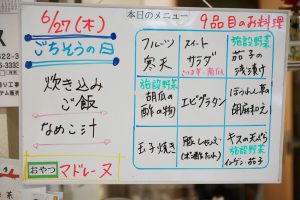 6/27(木)
ごちそうの日
炊き込み
ご飯
なめこ汁
おやつ マドレーヌ
本日のメニュー
9品目のお料理
フルーツ
寒天
スイート
サラダ
施設野菜
茄子の
浅漬け
施設野菜
胡瓜の
酢の物
エビグラタン
ほうれん草の
胡麻和え
玉子焼き
豚しゃぶ
キスの天ぷら
施設野菜
インゲン・茄子